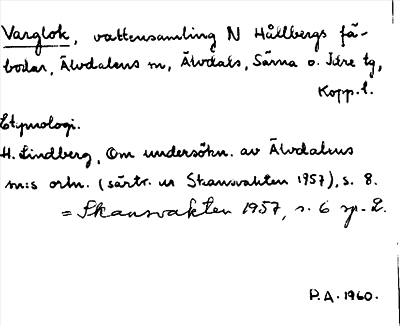 Varglok, vattensamling N Hållbergs fä-
bodar, Älvdalens m, Älvdals, Särna o. Idre tg,
Kopp.l.
Etymologi.
H. Lindberg, Om undersökn. av Älvdalens
m:s ortn. (särtr. ur Skansvakten 1957), s. 8.
= Skansvakten 1957, s. 6 sp. 2.
P.A. 1960.